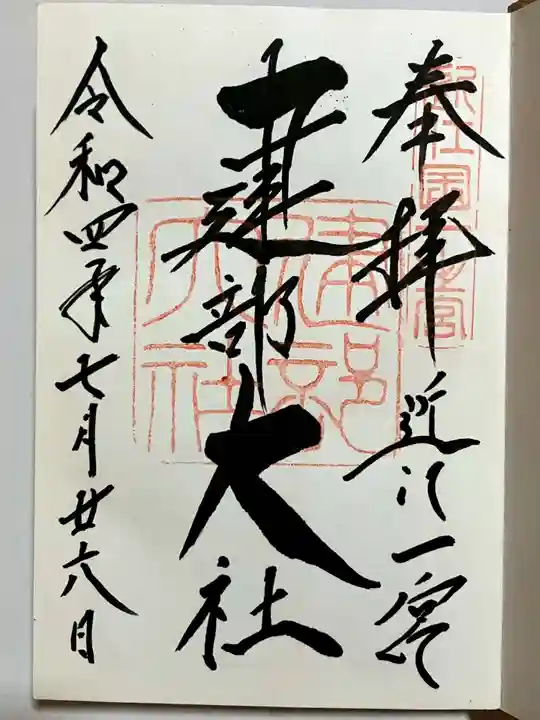 奉拝 近江一宮
建部大社
令和四年七月廿六日
建部大社